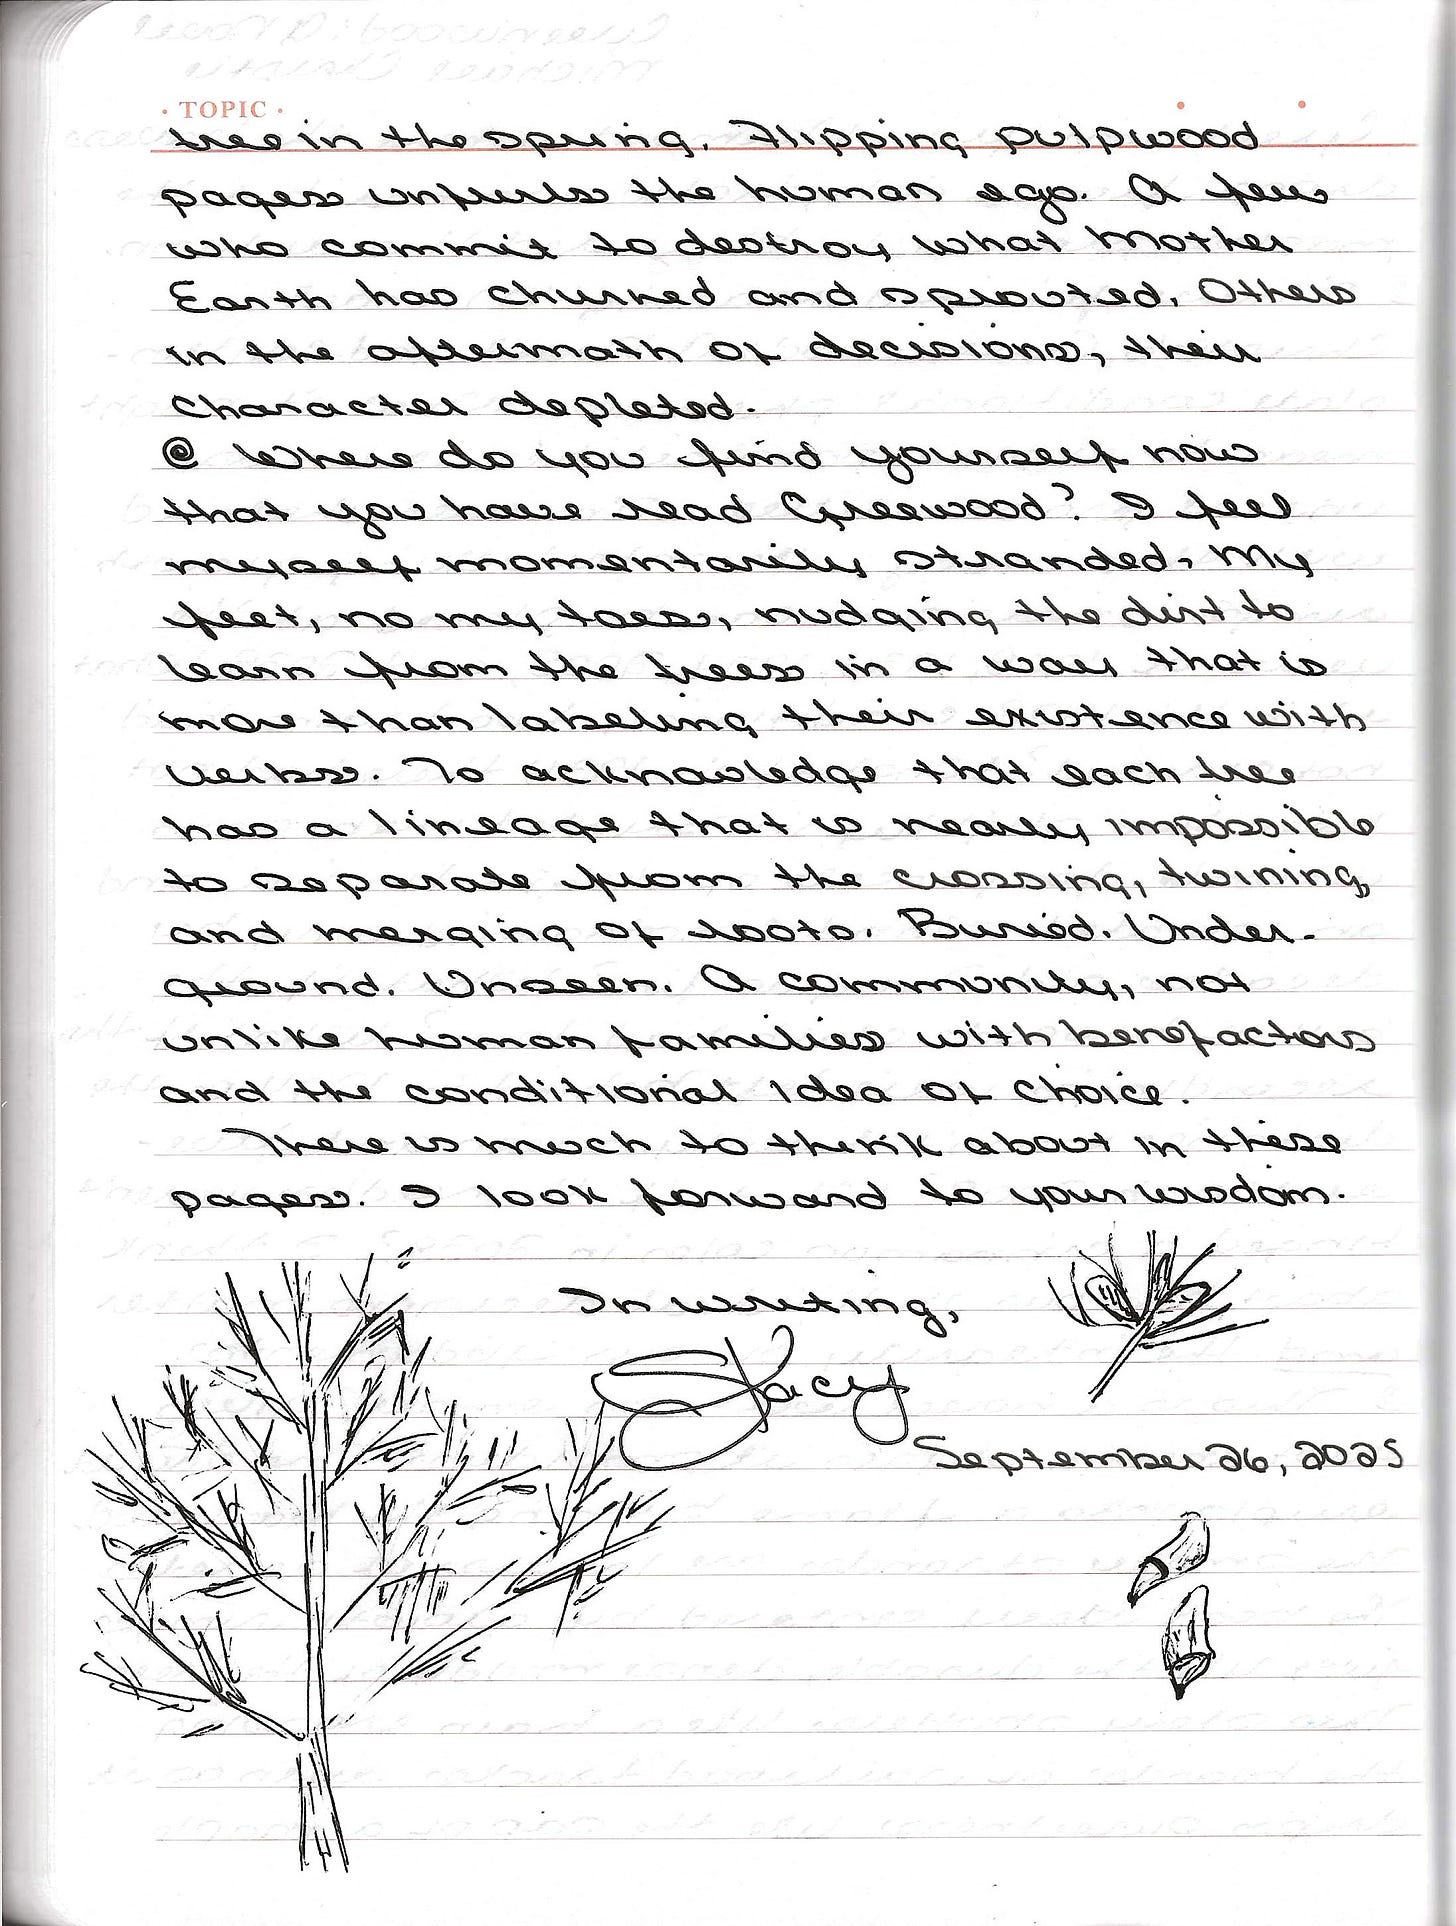 · TOPIC ·
tree in the spring. Flipping pulpwood
pages unfurls the human ego. A few
who commit to destroy what Mother
Earth has churned and sprouted. Others
in the aftermath of decisions, their
character depleted.
@ Where do you find yourself now
that you have read Greewood? I feel
myself momentarily stranded. My
feet, no my toes, nudging the dirt to
learn from the trees in a way that is
more than labeling their existence with
verbs. To acknowledge that each tree
has a lineage that is nearly impossible
to separate from the crossing, twining,
and merging of roots. Buried. Under-
ground. Unseen. A community, not
unlike human families with benefactors
and the conditional idea of choice.
There is much to think about in these
pages. I look forward to your wisdom.
In writing,
Stacy
September 26, 2025